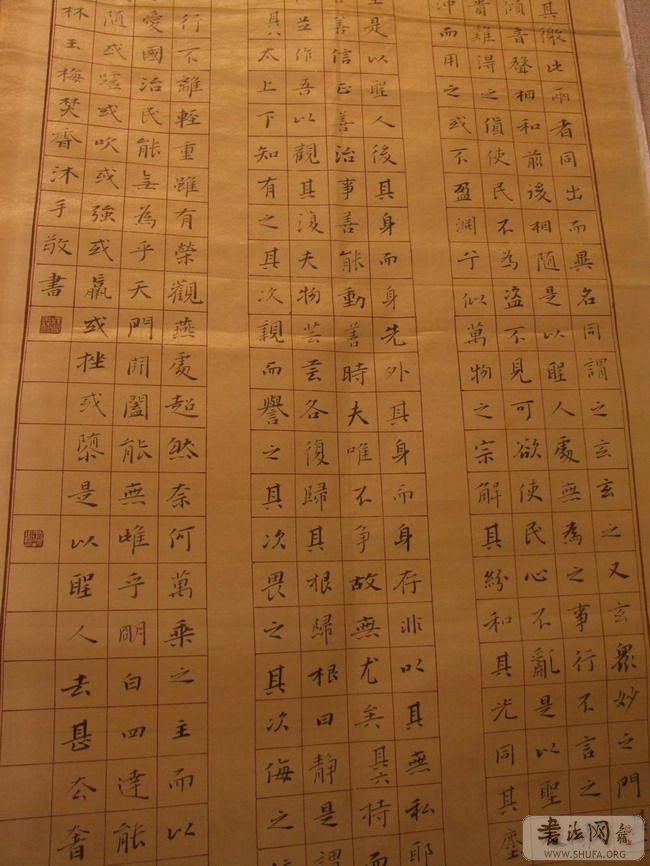 其徼此兩者同出而異名同謂之玄玄之又玄眾妙之門
傾音聲相和前後相隨是以聖人處無為之事行不言之
貴難得之貨使民不為盜不見可欲使民心不亂是以聖
沖而用之或不盈淵兮似萬物之宗解其紛和其光同其塵
生是以聖人後其身而身先外其身而身存非以其無私耶
善信正善治事善能動善時夫唯不爭故無尤矣其六持而
並作吾以觀其復夫物芸芸各復歸其根歸根曰靜是謂
其八太上下知有之其次親而譽之其次畏之其次侮之
行不離輕重雖有榮觀燕處超然奈何萬乘之主而以
愛國治民能無為乎天門開闔能無雌乎明白四達能
隨或噓或吹或強或羸或挫或隳是以聖人去甚去奢
林玉梅焚齊沐手敬書
書法网
www.SHUFA.ORG